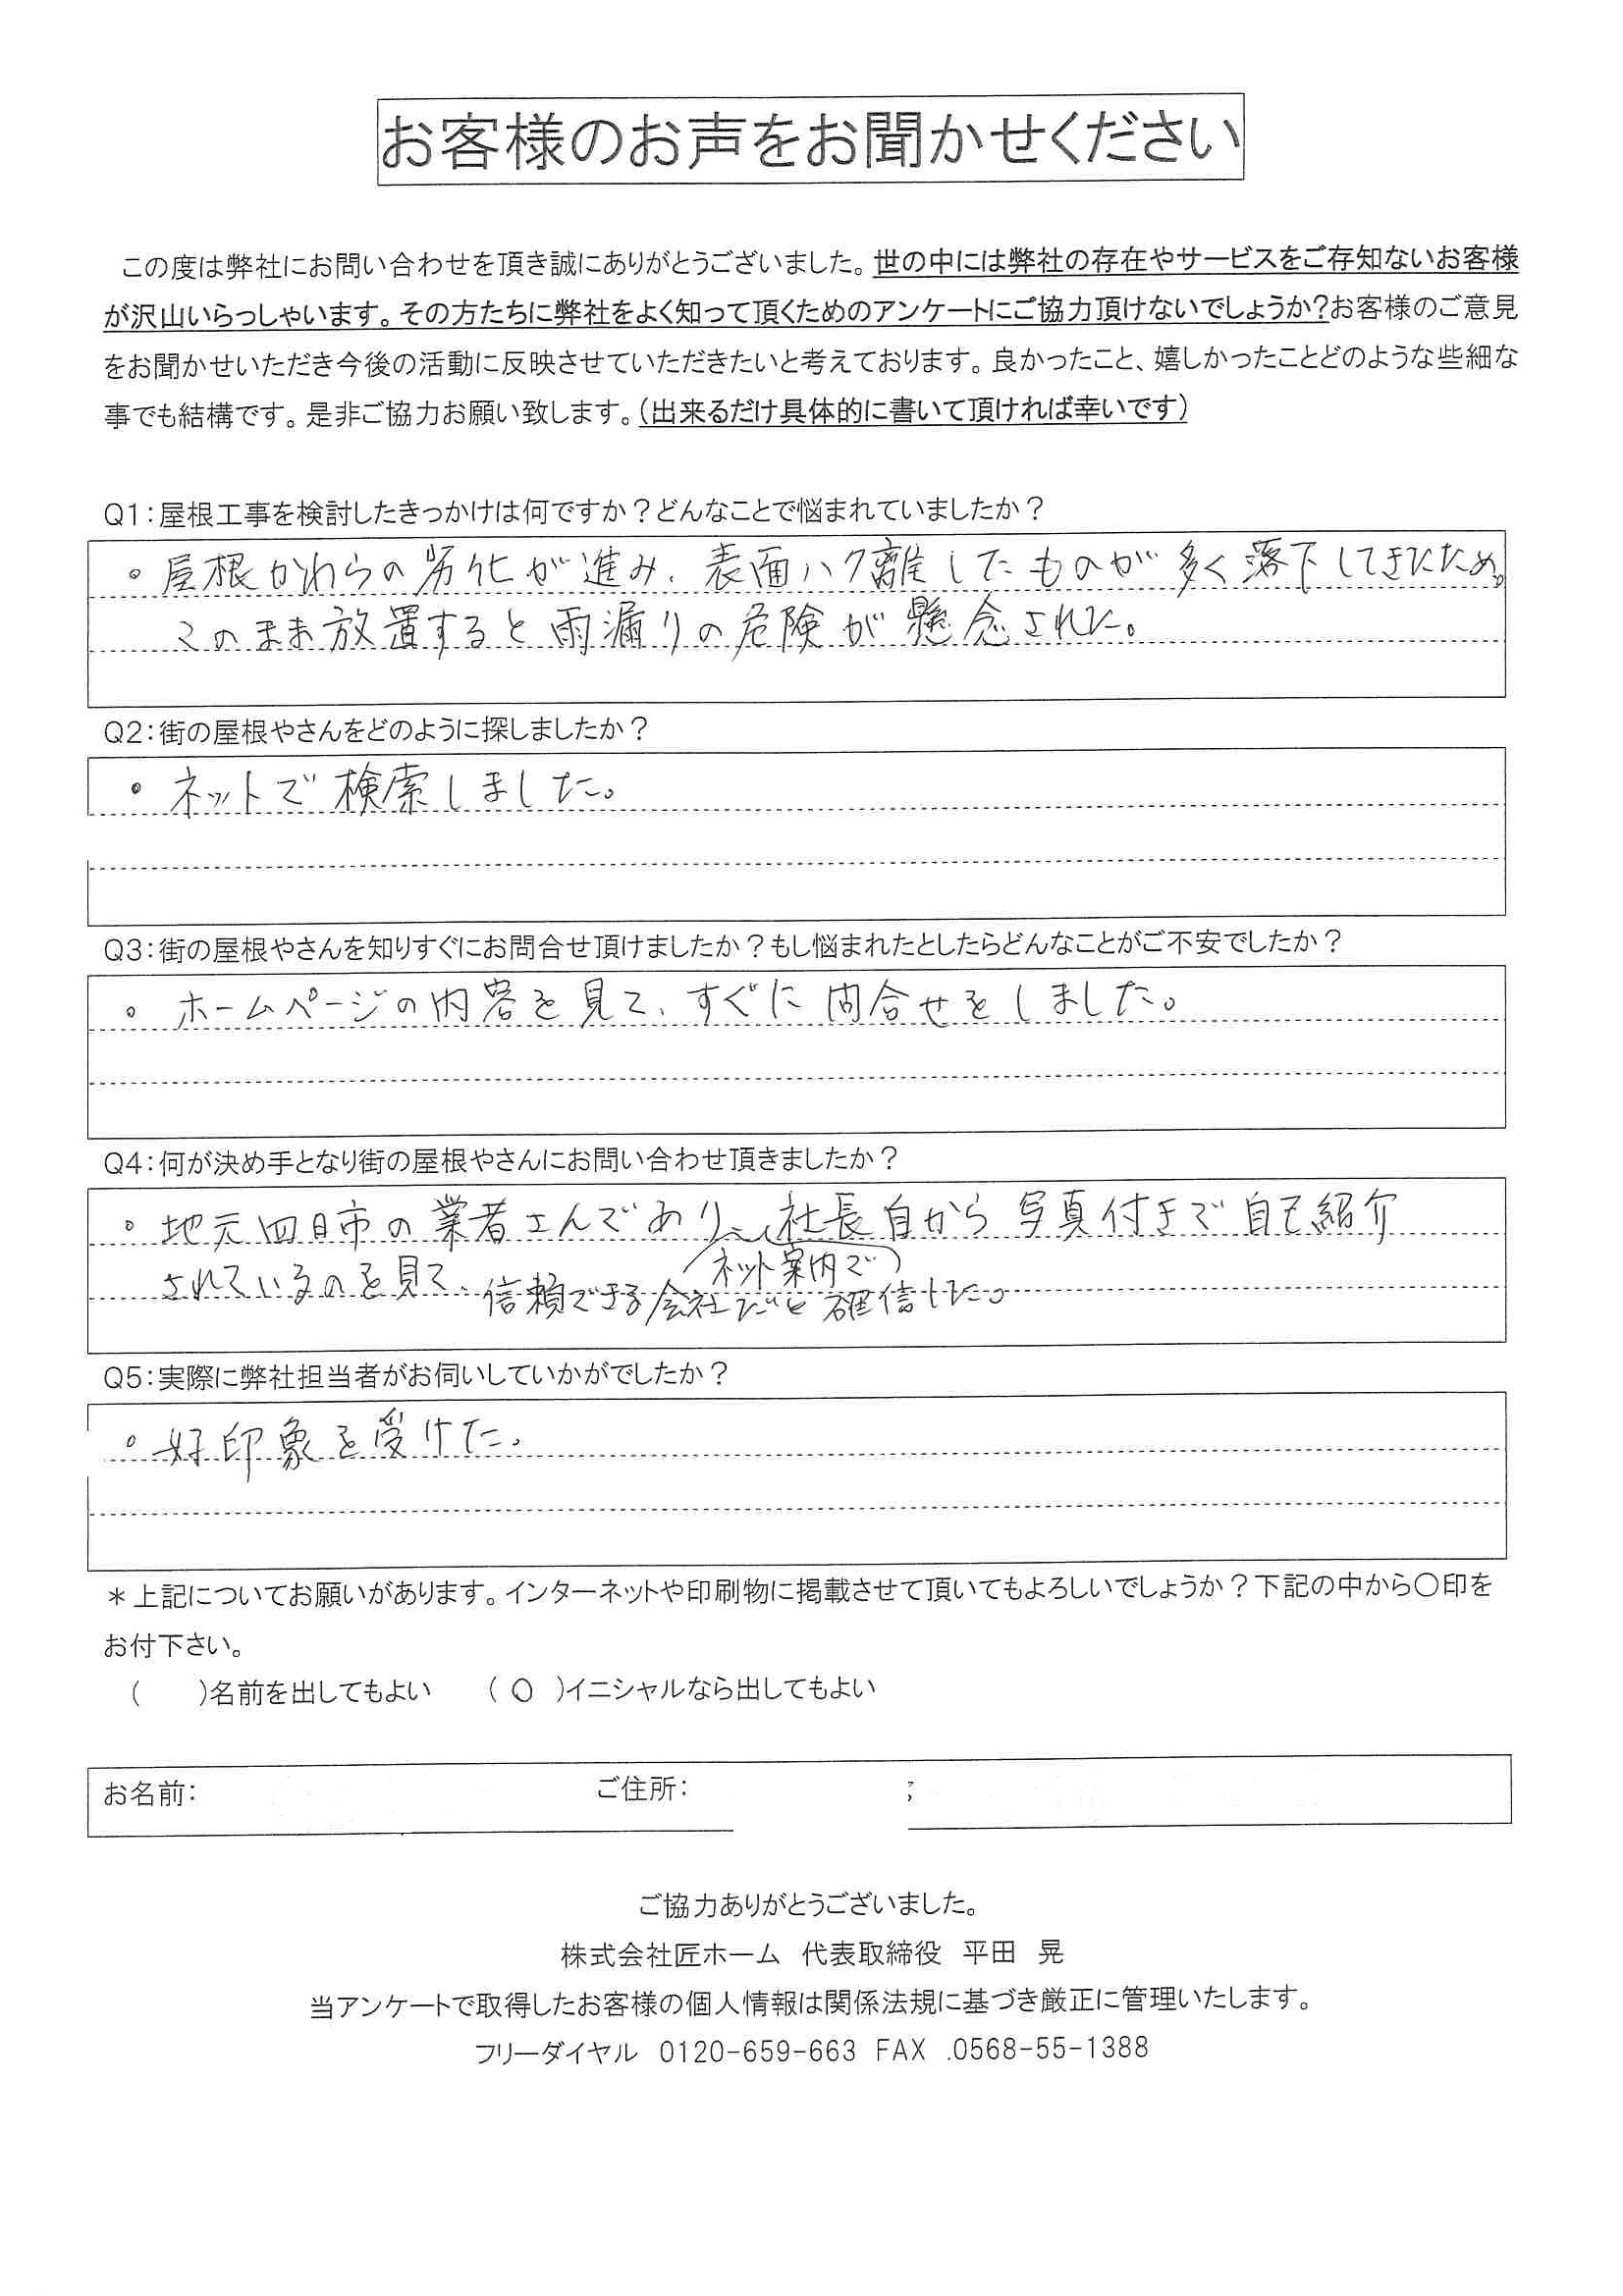 お客様のお声をお聞かせください
この度は弊社にお問い合わせを頂き誠にありがとうございました。世の中には弊社の存在やサービスをご存知ないお客様
が沢山いらっしゃいます。その方たちに弊社をよく知って頂くためのアンケートにご協力頂けないでしょうか?お客様のご意見
をお聞かせいただき今後の活動に反映させていただきたいと考えております。良かったこと、嬉しかったことどのような些細な
事でも結構です。是非ご協力お願い致します。(出来るだけ具体的に書いて頂ければ幸いです)
Q1:屋根工事を検討したきっかけは何ですか?どんなことで悩まれていましたか?
。屋根かわらの劣化が進み、表面ハク離したものが多く落下してきたため。
このまま放置すると雨漏りの危険が懸念された。
Q2:街の屋根やさんをどのように探しましたか?
・ネットで検索しました。
Q3:街の屋根やさんを知りすぐにお問合せ頂けましたか?もし悩まれたとしたらどんなことがご不安でしたか?
。ホームページの内容を見て、すぐに問合せをしました。
Q4:何が決め手となり街の屋根やさんにお問い合わせ頂きましたか?
。地元四日市の業者さんであり、社長自から写真付きで自己紹介
ネット案内で
されているのを見て、信頼できる会社だと確信した。
Q5:実際に弊社担当者がお伺いしていかがでしたか?
。好印象を受けた。
*上記についてお願いがあります。インターネットや印刷物に掲載させて頂いてもよろしいでしょうか?下記の中から〇印を
お付下さい。
(　　)名前を出してもよい　(○)イニシャルなら出してもよい
お名前:　ご住所:
ご協力ありがとうございました。
株式会社匠ホーム　代表取締役　平田　晃
当アンケートで取得したお客様の個人情報は関係法規に基づき厳正に管理いたします。
フリーダイヤル　0120-659-663 FAX .0568-55-1388